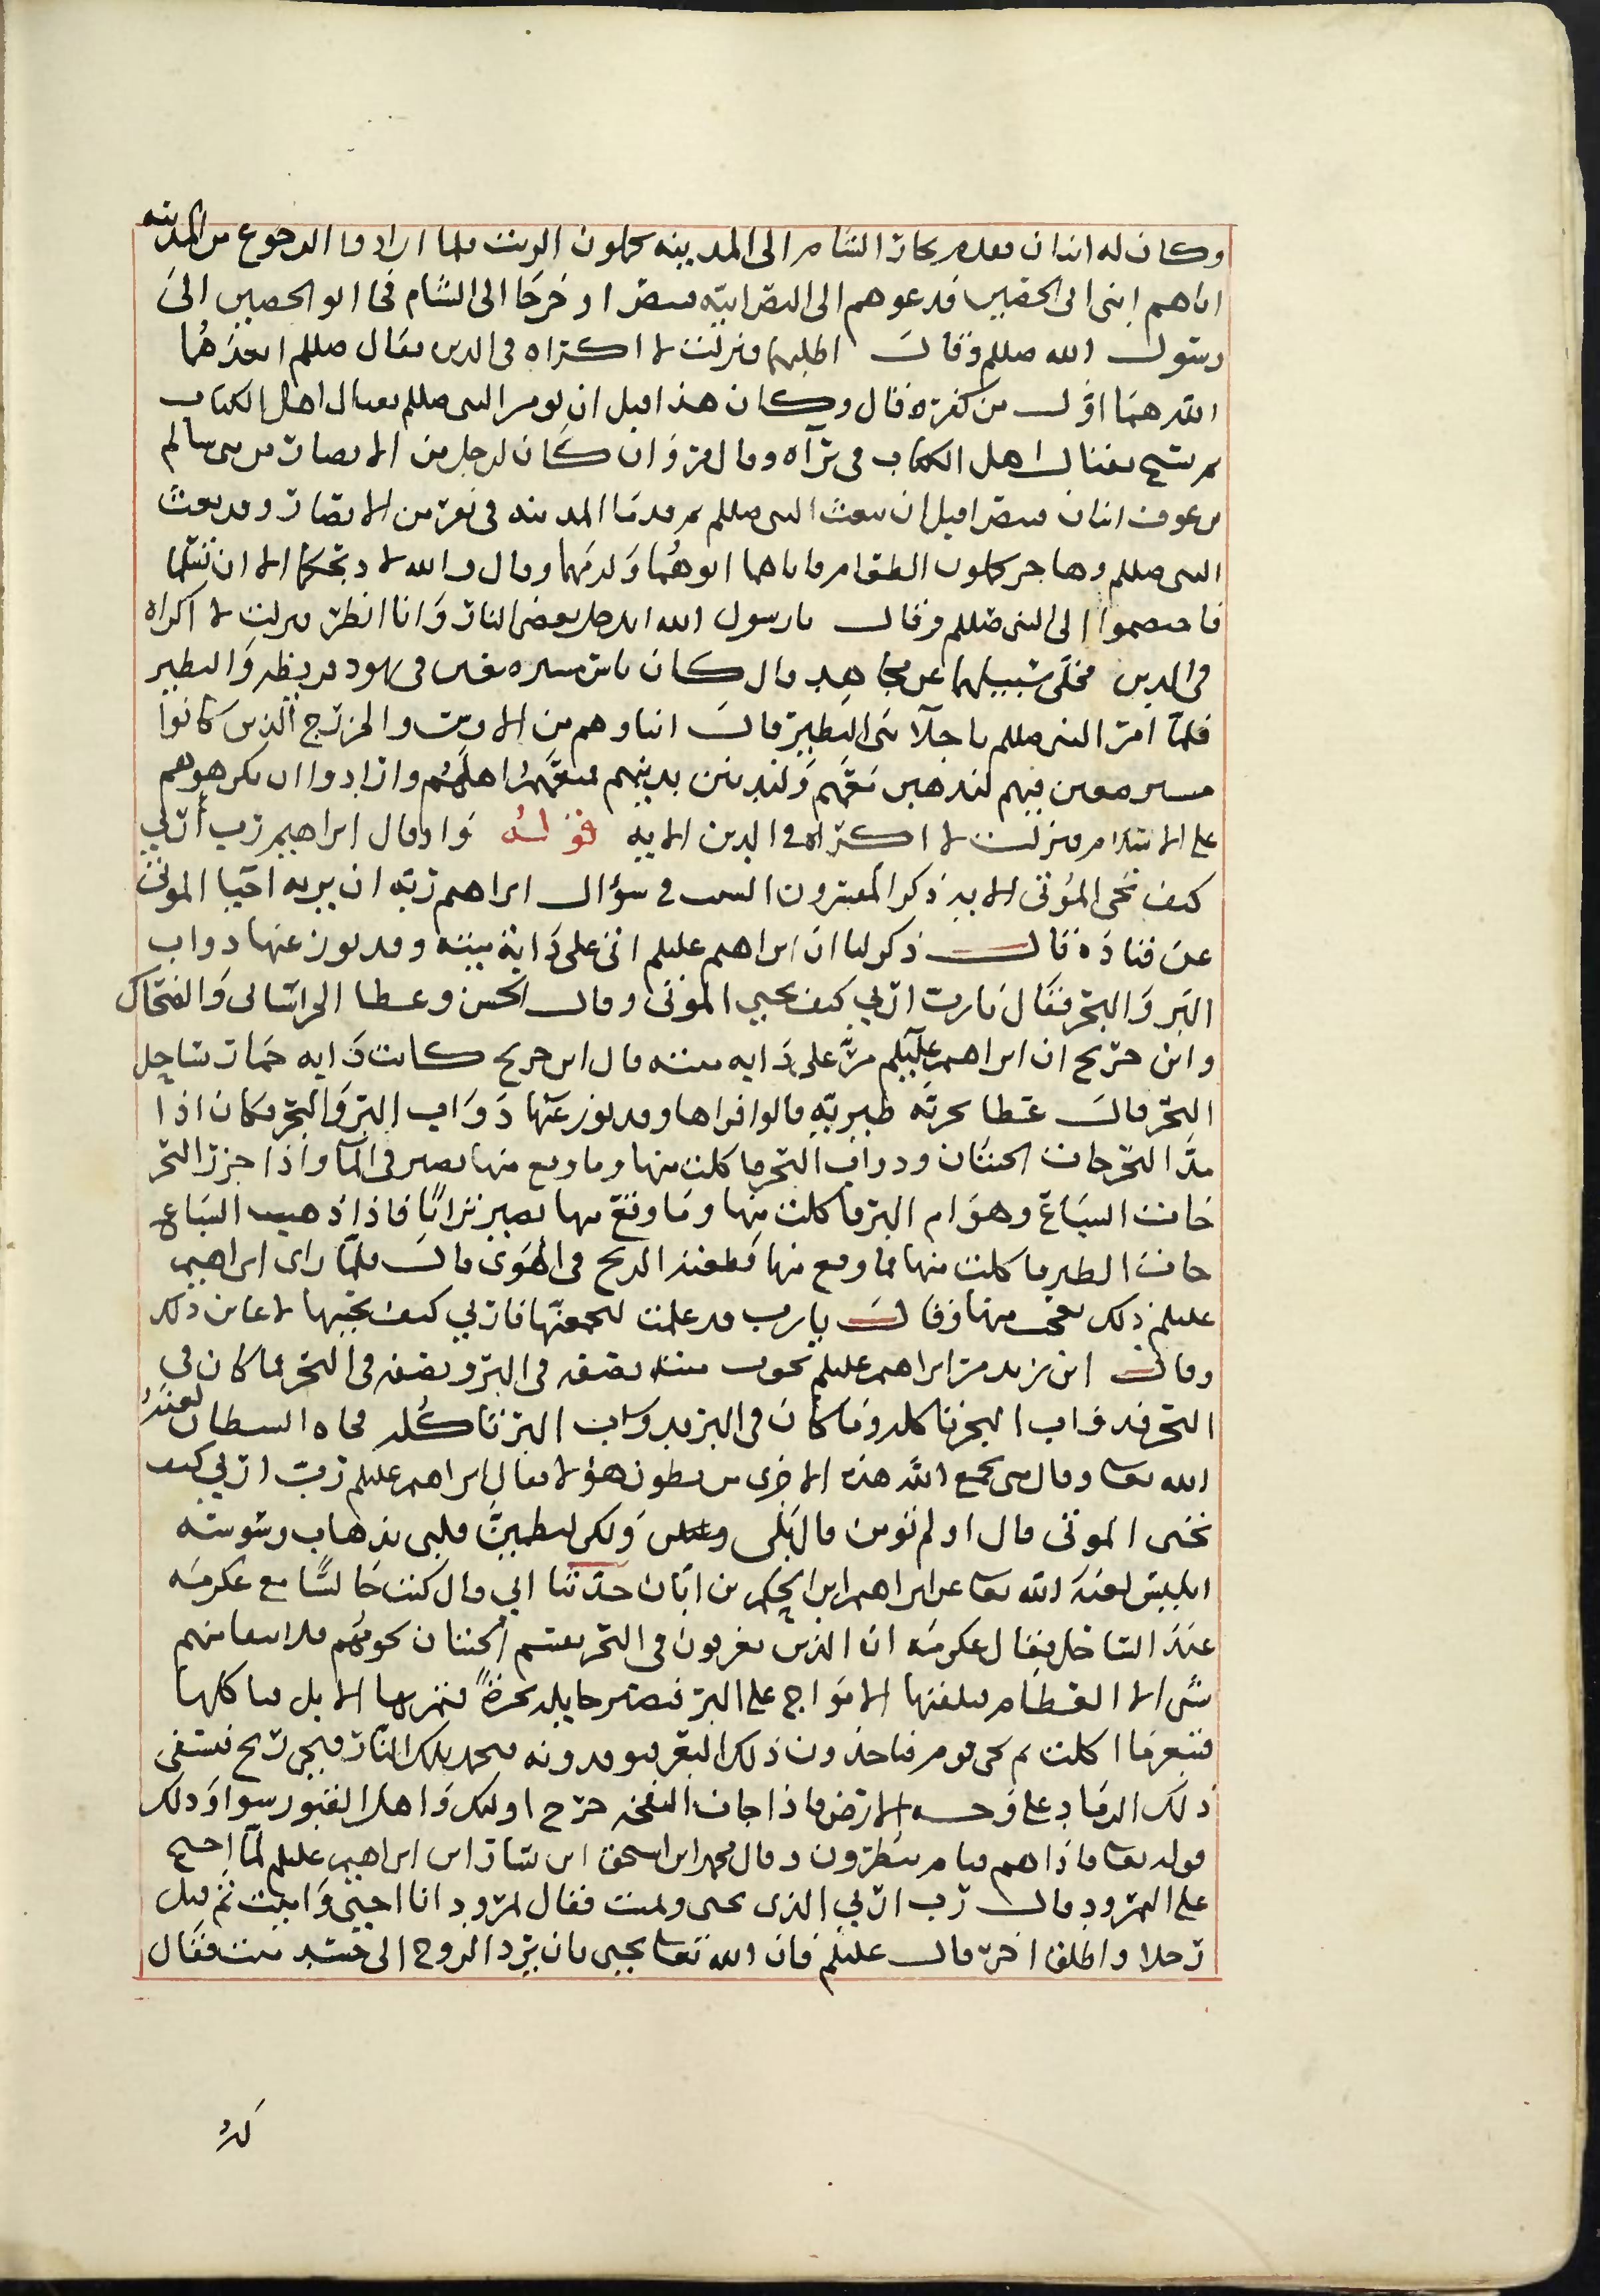 وكان له ابنان فقدم تجار الشام الى المدينه يحملون الزيت فلما ارادوا الرجوع من المدينه
اتاهم ابنى ابى الحصين فدعوهم الى النصرانيه فتنصرا وخرجا الى الشام فجا ابو الحصين الى
رسول الله صللم وقال اطلبهما فنزلت لا اكراه فى الدين فقال صللم ابعدهما
الله هما اول من كفر قال وكان هذا قبل ان يومر النبى صللم بقتال اهل الكتاب
ثم نسخ بقتال اهل الكتاب فى برآه وقال مسروق ان كان لرجل من الانصار من بنى سالم
بن عوف ابنان فتنصرا قبل ان يبعث النبى صللم ثم قدما المدينه فى نفر من الانصار وقد بعث
النبى صللم وهاجر يحملون الطعام فاتاهما ابوهما ولزمهما وقال والله لا ادعكما الا ان تسلما
فاختصموا الى النبى صللم وقال يا رسول الله ايدخل بعضى النار وانا انظر فنزلت لا اكراه
فى الدين فخلى سبيلهما عن مجاهد قال كان ناس مسترضعين فى يهود قريظه والنظير
فلما امر النبى صللم باجلآ بنى النظير قال ابناوهم من الاوس والخزرج الذين كانوا
مسترضعين فيهم لنذهبن معهم ولندينن بدينهم فمنعهم اهلهم وارادوا ان يكرهوهم
على الاسلام فنزلت لا اكراه فى الدين الايه قوله واذ قال ابراهيم رب ارنى
كيف تحى الموتى الايه ذكر المفسرون السبب فى سؤال ابراهيم ربه ان يريه احيا الموتى
عن قتاده قال ذكر لنا ان ابراهيم عليلم اتى على دابة ميته وقد توزعتها دواب
البر والبحر فقال يا رب ارنى كيف تحيى الموتى وقال الحسن وعطا الخراسانى والضحاك
وابن جريج ان ابراهيم عليلم مر على دابه ميته قال ابن جريج كانت دابه حمار بساحل
البحر قال عطا بحرية طبريه قالوا فراها وقد توزعتها دواب البر والبحر فكان اذا
مد البحر جات الحيتان ودواب البحر فاكلت منها وما وقع منها يصير فى المآ واذا جزر البحر
جات السباع وهوام البر فاكلت منها وما وقع منها يصير ترابا فاذا ذهب السباع
جات الطير فاكلت منها فما وقع منها قطعته الريح فى الهوى قال فلما راى ابراهيم
عليلم ذلك تعجب منها وقال يا رب قد علمت لتجمعنها فارنى كيف تحييها لاعاين ذلك
وقال ابن زيد مر ابراهيم عليلم بحوت ميته نصفه فى البر ونصفه فى البحر فما كان فى
البحر فدواب البحر تاكله وما كان فى البر فدواب البر تاكله فجاه الشيطان لعنه
الله تعا وقال متى يجمع الله هذه الاجزى من بطون هؤلا فقال ابراهيم عليلم رب ارنى كيف
تحيى الموتى قال اولم تومن قال بلى ولكن ليطمئن قلبى بذهاب وسوسته
ابليس لعنه الله تعا عن ابراهيم ابن الحكم بن ابان حدثنا ابى قال كنت جالسا مع عكرمه
عند الساحل فقال عكرمه ان الذين يغرقون فى البحر يقتسم الحيتان لحومهم فلا يبقا منهم
شى الا العظام فتلقيها الامواج على البر فتصير حايله نخرة فتمر بها الابل فتاكلها
فتبعر ما اكلت ثم يجى قوم فياخذون ذلك البعر فيوقدونه فتخمد تلك النار فيجى ريح فتسفى
ذلك الرماد على وجه الارض فاذا جات النفخه خرج اوليك واهل القبور سوا وذلك
قوله تعا فاذا هم قيام ينظرون وقال محمد ابن اسحق ابن يسار ان ابراهيم عليلم لما احتج
على النمرود قال رب ارنى الذى يحيى ويميت فقال نمرود انا احيى واميت ثم قتل
رجلا واطلق اخر قال عليلم فان الله تعا يحيى بان يرد الروح الى جسد ميت فقال